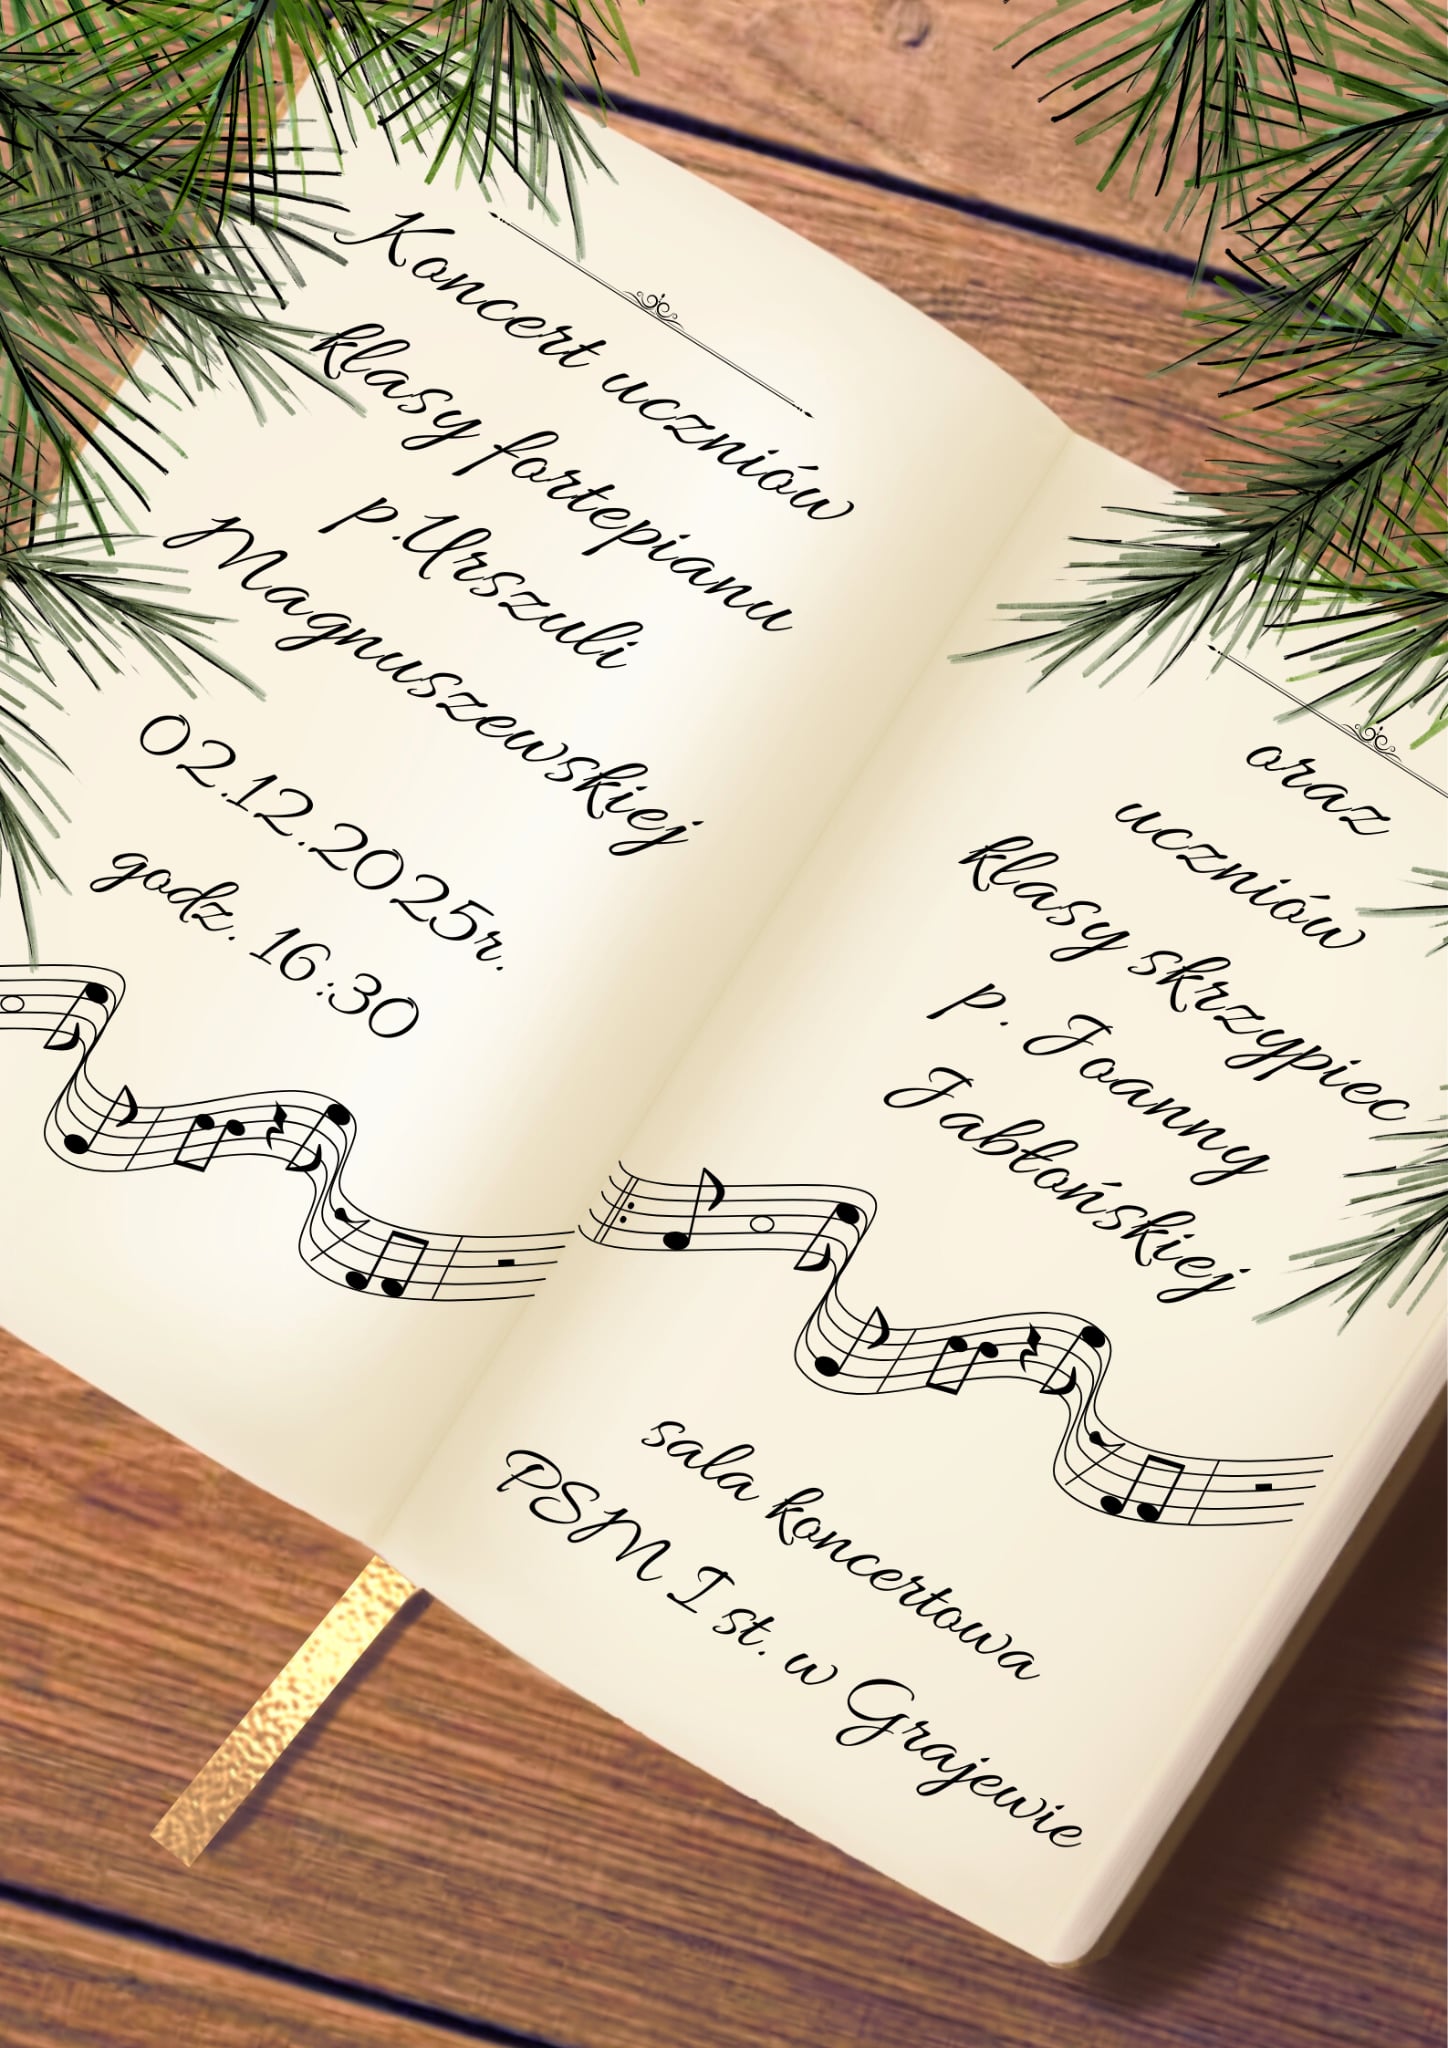 Koncert uczniów
klasy fortepianu
p.Urszuli
Magnuszewskiej
02.12.2025r.
godz. 16:30
oraz
uczniów
klasy skrzypiec
p. Joanny
Jabłońskiej
sala koncertowa
PSM I st. w Grajewie